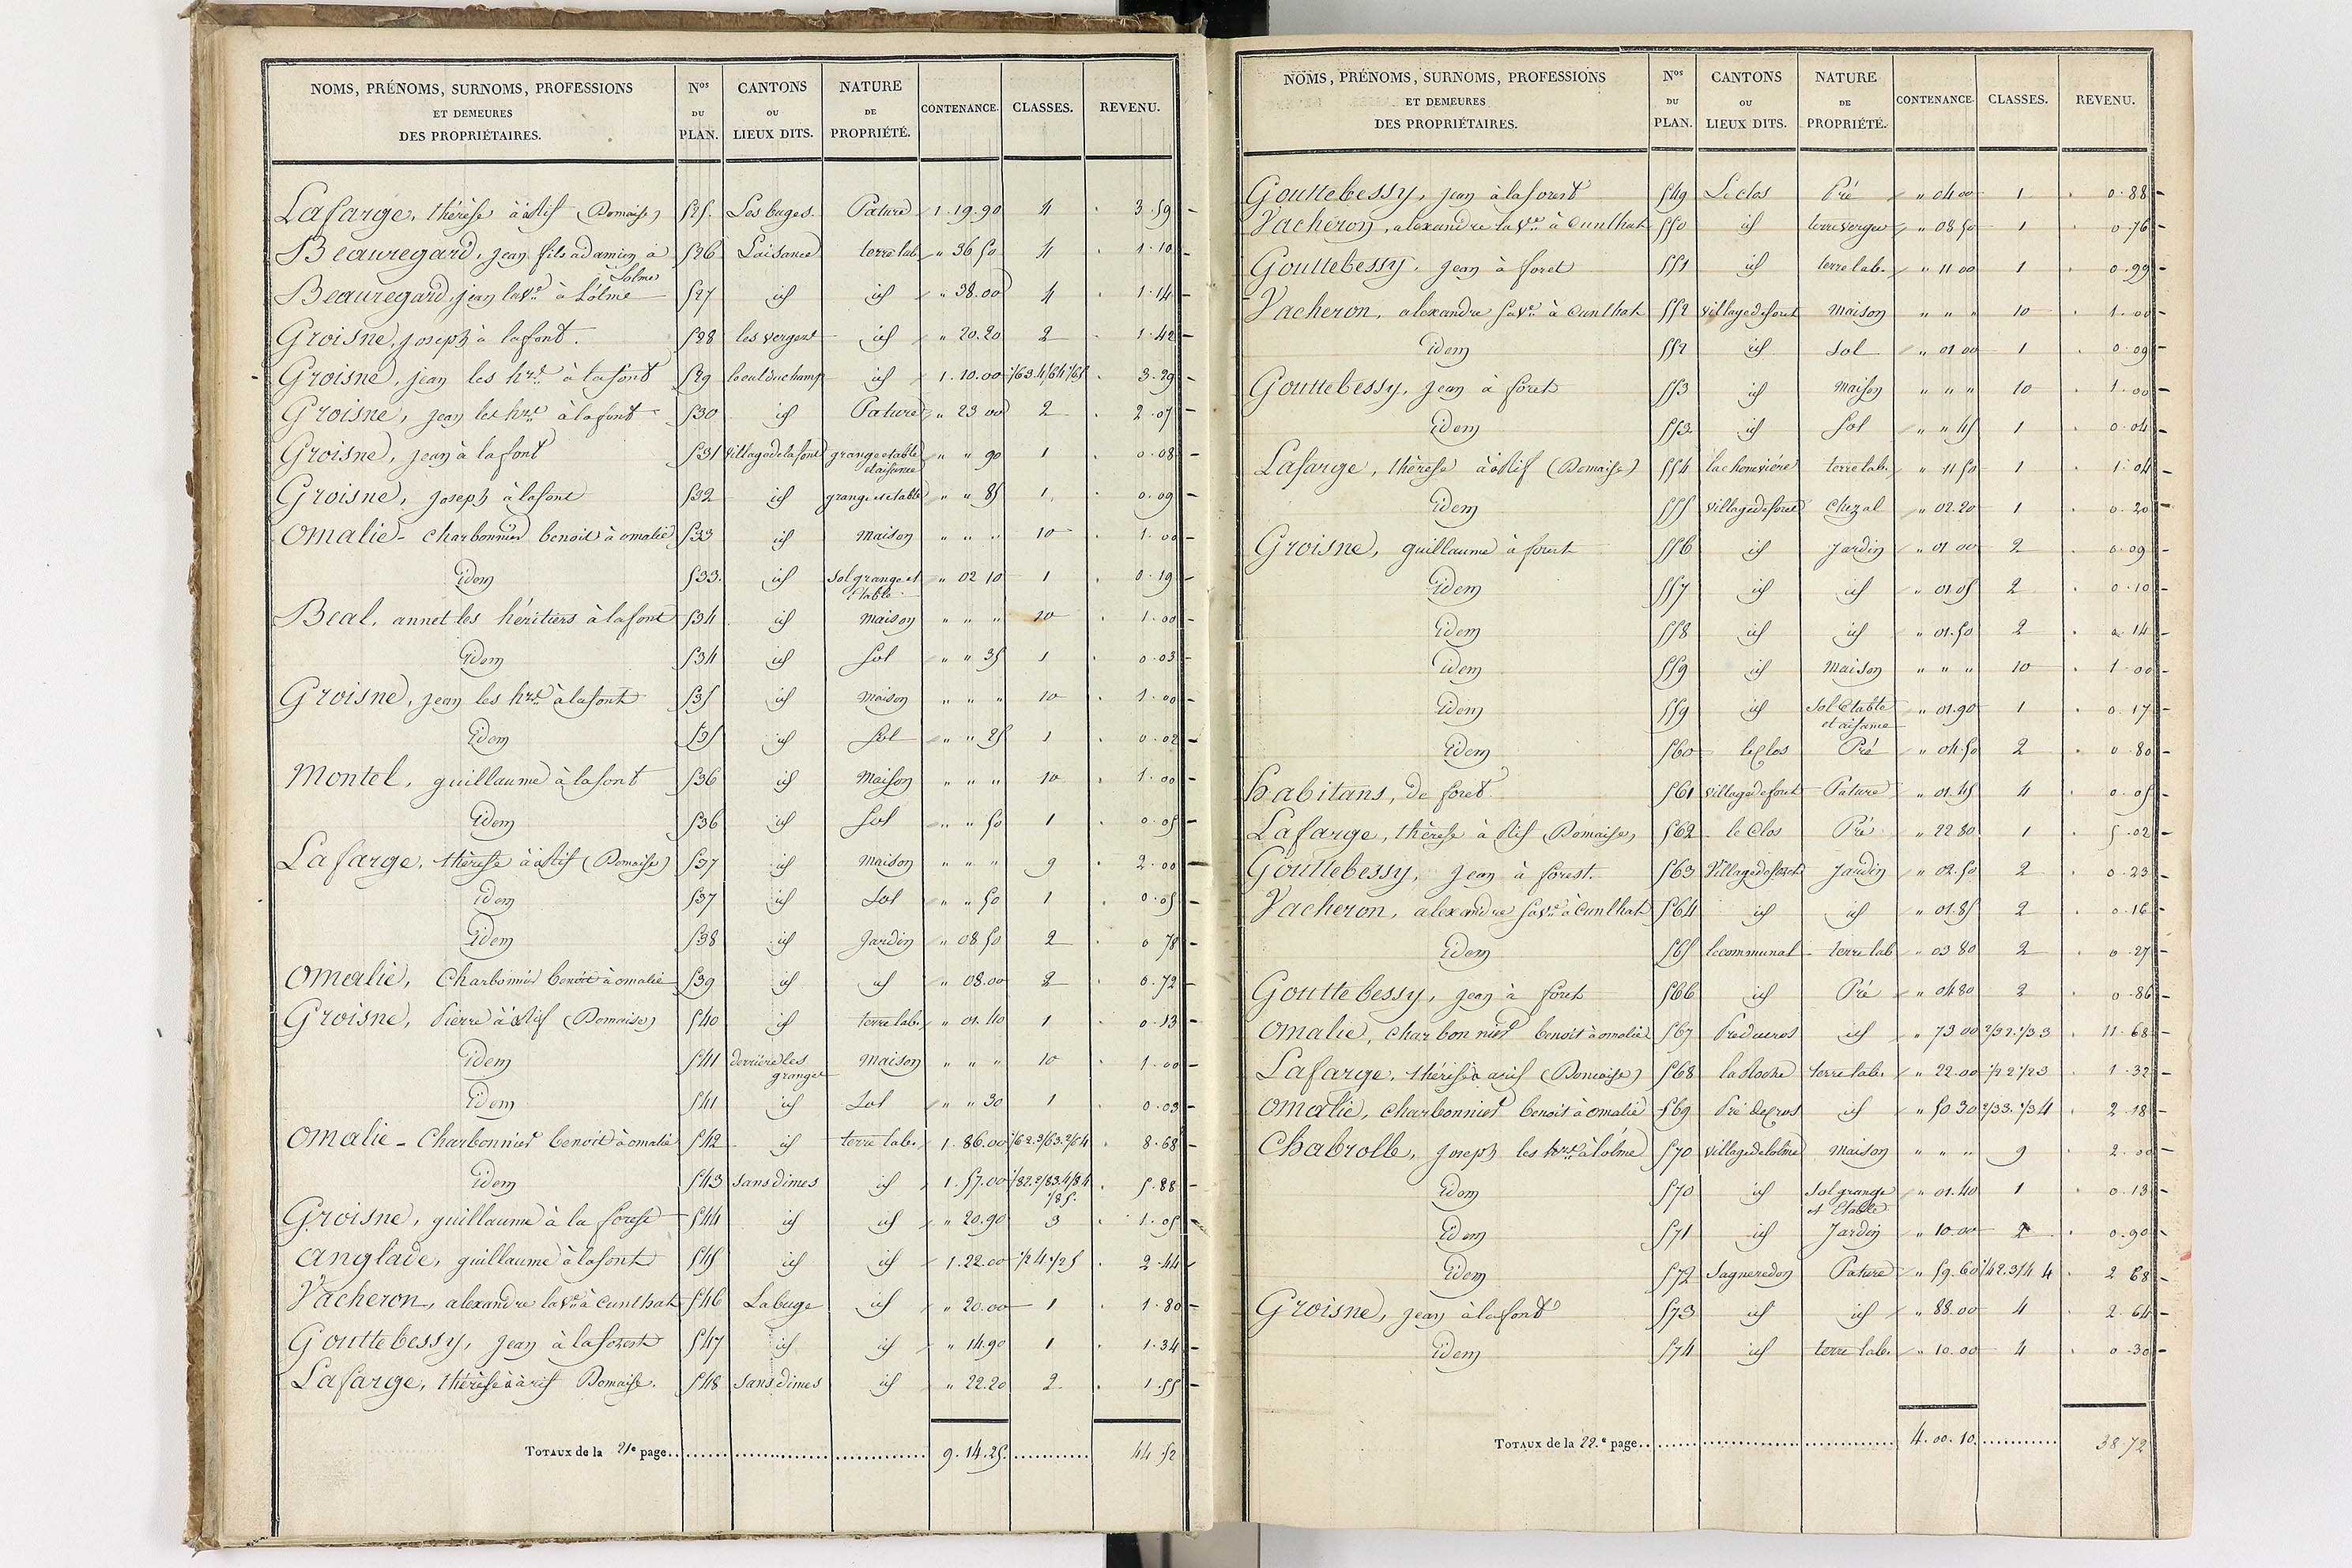 NOMS, PRÉNOMS, SURNOMS, PROFESSIONS ET DEMEURES DES PROPRIÉTAIRES. Nos DU PLAN. CANTONS OU LIEUX DITS. NATURE DE PROPRIÉTÉ. CONTENANCE. CLASSES. REVENU.
Lafarge, thérèse à (Domaise) 525. Les buges. Pature 1.19.90 4 3.59
Beauregard, jean fils adamien à Lolme 526 Laisance terre lab. " 36 50 4 1.10
Beauregard, jean lave. à Lolme 527 id id " 38.00 4 1.14
Groisne, joseph à lafont. 528 les vergers id " 20.20 2 1.42
Groisne, jean les hrs. à lafont 529 id 1.10.00 3.29
Groisne, jean les hrs. à lafont 530 id Pature " 23 00 2 2.07
Groisne, jean à lafont 531 village de lafont grange etable et aisance " " 90 1 0.08
Groisne, joseph à lafont 532 id grange et etable " " 85 1 0.09
Omalie - charbonnier benoit à omalie 533 id maison " " " 10 1.00
Idem 533. id Sol grange et Etable " 02 10 1 0.19
Beal, annet les héritiers à lafont 534 id maison " " " 10 1.00
Idem 534 id Sol " " 35 1 0.03
Groisne, jean les hrs. à lafont 535 id maison " " " 10 1.00
Idem 535 id Sol " " 25 1 0.02
Montel, guillaume à lafont 536 id Maison " " " 10 1.00
Idem 536 id Sol " " 50 1 0.05
Lafarge, thérèse à (Domaise) 537 id Maison " " " 9 2.00
idem 537 id Sol " " 50 1 0.05
Idem 538 id Jardin " 08 50 2 0 78
Omalie, Charbonnier benoit à omalie 539 id id " 08.00 2 0.72
Groisne, Pierre à (Domaise) 540 id terre lab. " 01.40 1 0.13
Idem 541 derrière les granges Maison " " " 10 1.00
Idem 541 id Sol " " 30 1 0.03
Omalie - Charbonnier benoit à omalie 542 id terre lab. 1.86.00 1/62.3/63.2/64 8.68
Idem 543 sans dimes id 1.57.00 1/82.2/83.4/84 1/85. 5.88
Groisne, guillaume à la forest 544 id id " 20.90 3 1.05
Anglade, guillaume à lafont 545 id id 1.22.00 1/24.1/25 2.44
Vacheron, alexandre lave. à Cunlhat 546 Labuge id " 20.00 1 1.80
Gouttebessy, jean à laforest 547 id id " 14.90 1 1.34
Lafarge, thérèse à Domaise. 548 sans dimes id " 22.20 2 1.55
TOTAUX de la 21e page 9.14.25. 44.52
NOMS, PRÉNOMS, SURNOMS, PROFESSIONS ET DEMEURES DES PROPRIÉTAIRES. Nos DU PLAN. CANTONS OU LIEUX DITS. NATURE DE PROPRIÉTÉ. CONTENANCE. CLASSES. REVENU.
Gouttebessy, jean à laforest 549 Leclos Pré " 04 00 1 0.88
Vacheron, alexandre lave. à Cunlhat 550 id terre verger " 08 50 1 0.76
Gouttebessy, jean à foret 551 id terre lab. " 11 00 1 0.99
Vacheron, alexandre lave. à Cunlhat 552 village de foret Maison " " " 10 1.00
Idem 552 id Sol " 01 00 1 0.09
Gouttebessy, jean à foret 553 id Maison " " " 10 1.00
Idem 553. id Sol " " 45 1 0.04
Lafarge, thérèse à (Domaise) 554 lacheneviére terre lab. " 11 50 1 1.04
Idem 555 village de foret Chezal " 02.20 1 0.20
Groisne, guillaume à forest 556 id Jardin " 01 00 2 0.09
Idem 557 id id " 01.05 2 0.10
Idem 558 id id " 01.50 2 0.14
Idem 559 id Maison " " " 10 1 00
Idem 559 id Sol Etable et aisance " 01.90 1 0.17
Idem 560 le clos Pré " 04.50 2 0.80
habitans, de foret 561 village de foret Pature " 01.45 4 0.05
Lafarge, thérèse à (Domaise) 562 le Clos Pré " 22 80 1 5.02
Gouttebessy, jean à forest. 563 Village de foret Jardin " 02.50 2 0.23
Vacheron, alexandre lave. à Cunlhat 564 id id " 01.85 2 0.16
Idem 565 le communal terre lab " 03 80 2 0.27
Gouttebessy, jean à foret 566 id Pré " 04 80 2 0.86
Omalie, charbonnier benoit à omalie 567 id " 73 00 2/32.1/33 11.68
Lafarge, thérèse à (Domaise) 568 terre lab. " 22.00 1/22 1/23 1.32
Omalie, charbonnier benoit à omalie 569 id " 50.30 2/33.1/34 2.18
Chabrolle, joseph les hrs. à lolme 570 village de lolme Maison " " " 9 2.00
Idem 570 id Sol grange et Etable " 01.40 1 0.13
Idem 571 id Jardin " 10.00 2 0.90
Idem 572 Sagneredon Pature " 59.60 1/42.3/44 2 68
Groisne, jean à lafont 573 id id " 88.00 4 2 64
Idem 574 id terre lab. " 10.00 4 0.30
TOTAUX de la 22.e page 4.00.10. 38 72